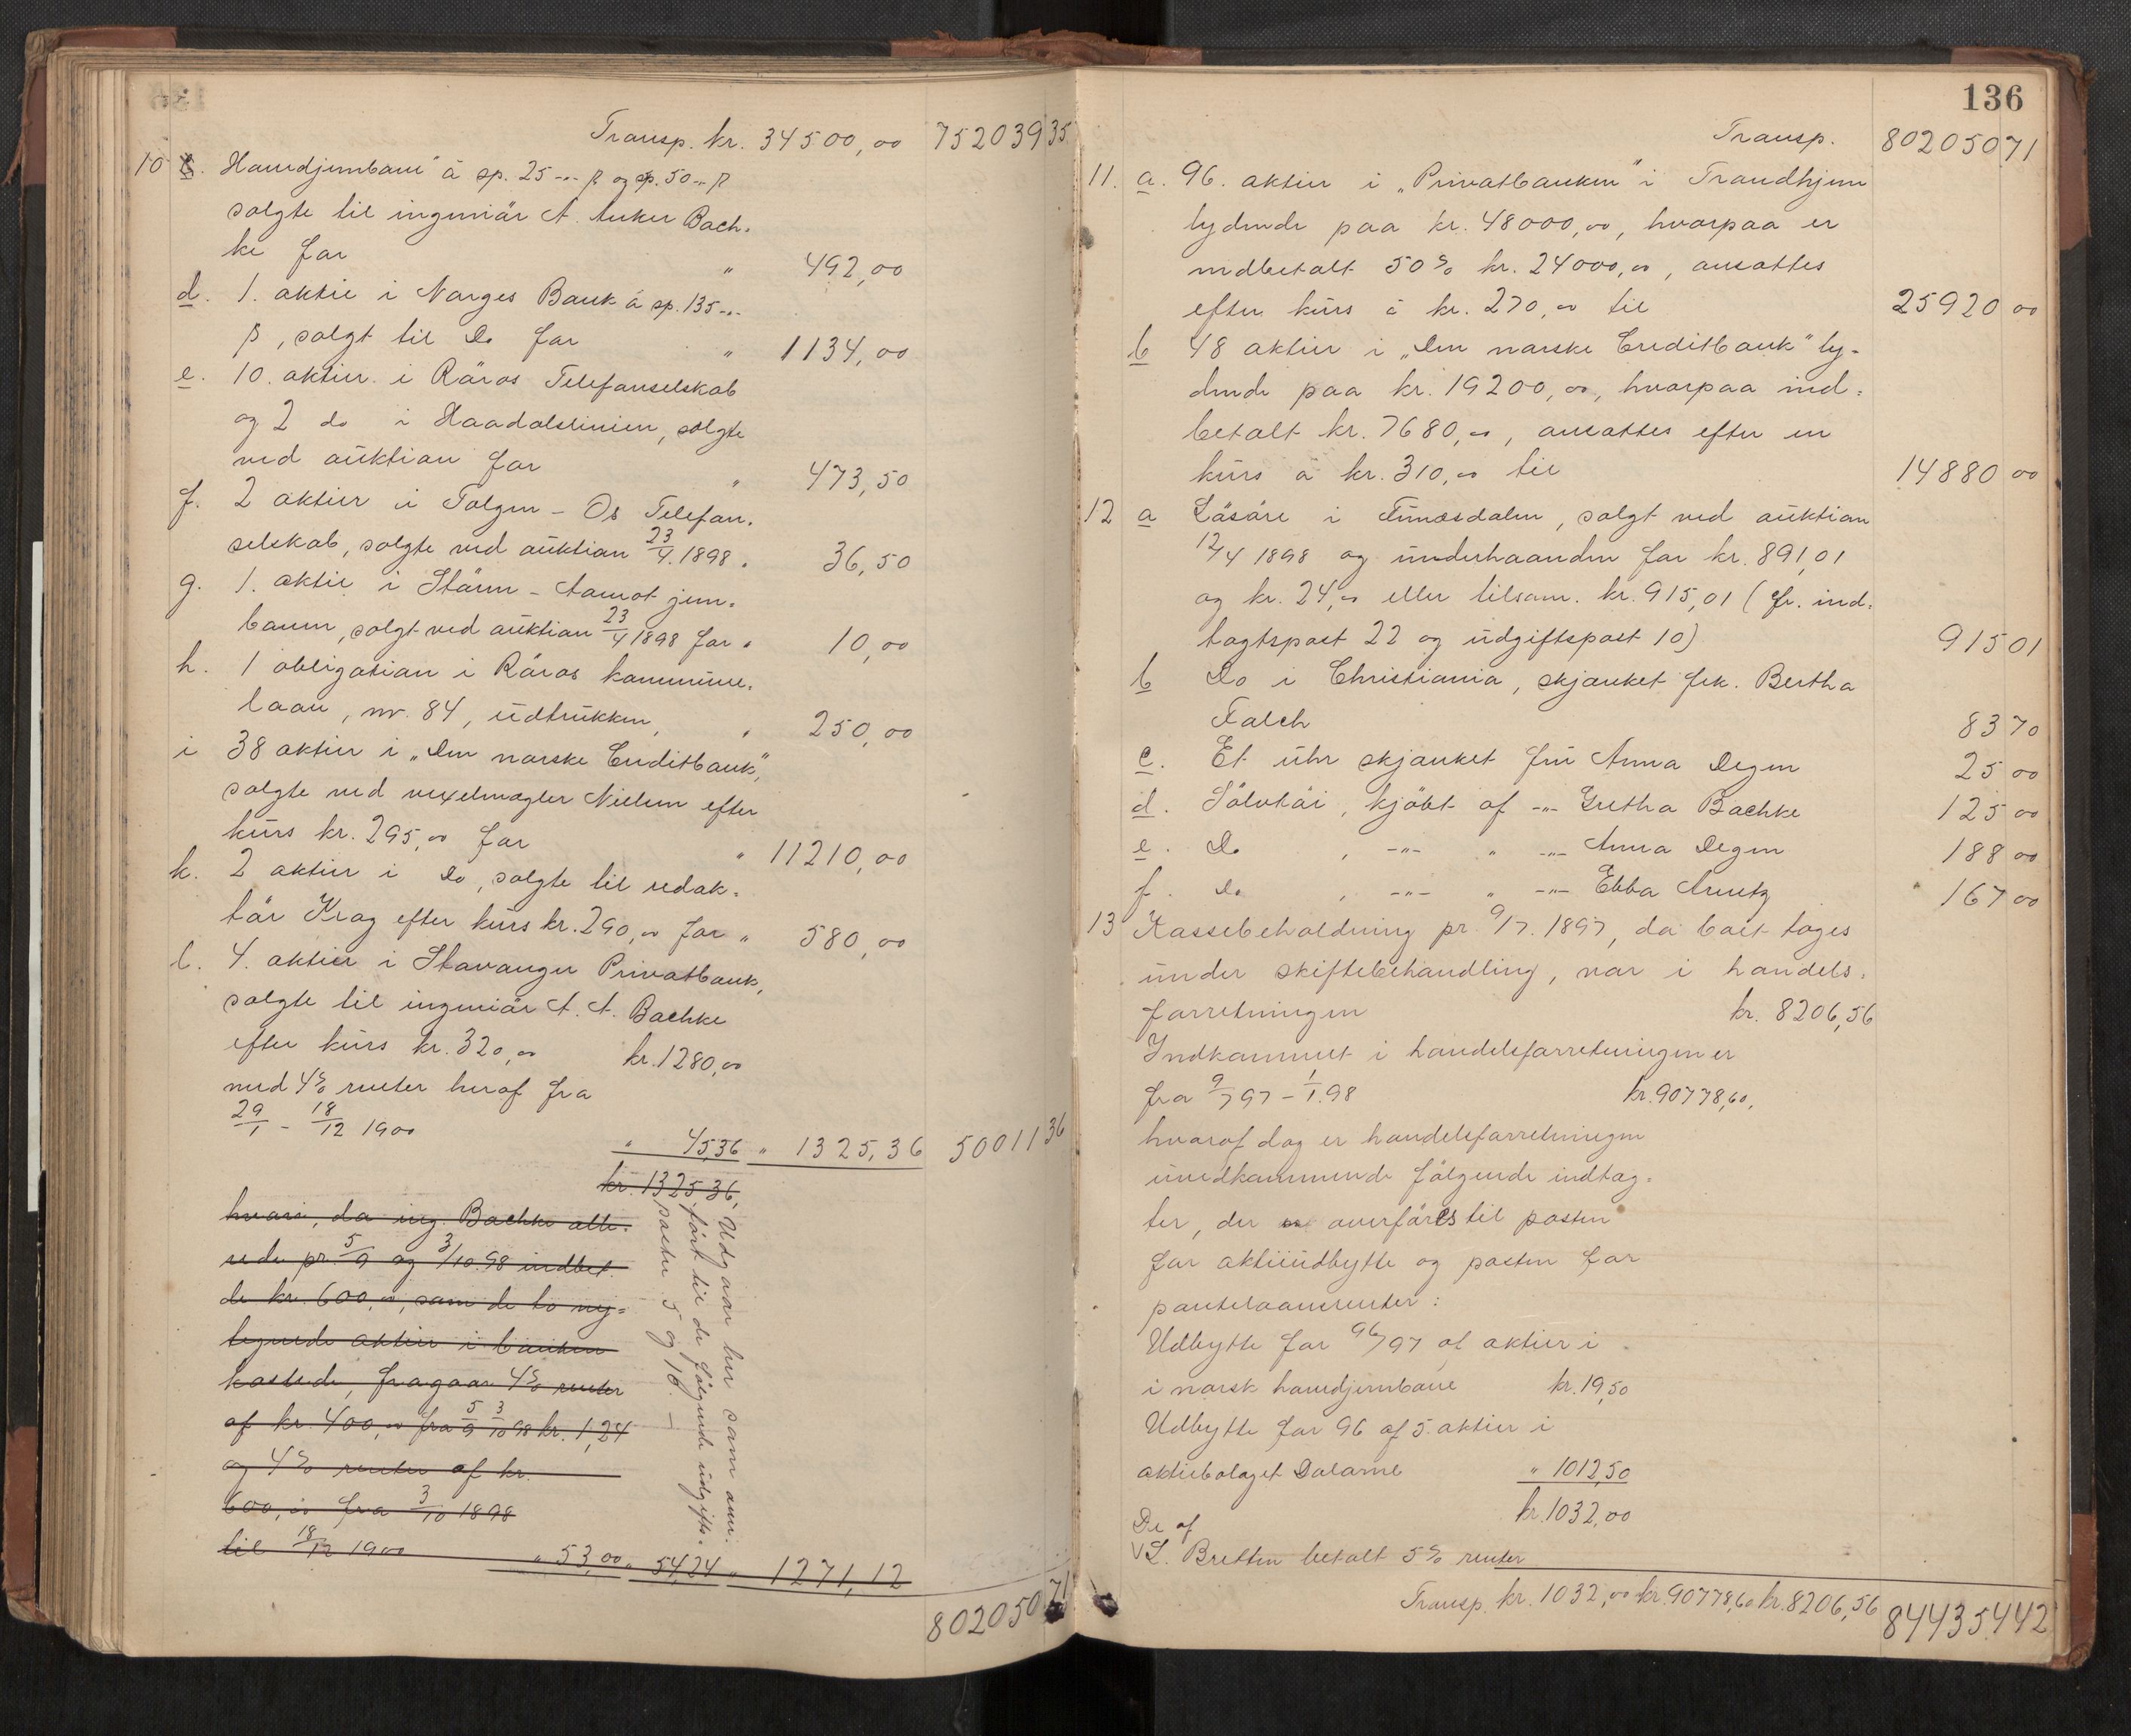 Transp. kr. 34500,00 75203935
10 c. Hovedjernbane" à sp. 25 -"- β og sp. 50 -"- β
solgte til ingeniör A. Anker Bach-
ke for " 492,00
d. 1. aktie i Norges Bank à sp. 135 -"-
β, solgt til Do for " 1134,00
e. 10. aktier i Röros Telefonselskab
og 2 do i Haadalslinien, solgte
ved auktion for " 473,50
f. 2 aktier i Tolgen - Os Telefon-
selskab, solgte ved auktion 23/4. 1898 " 36,50
g. 1. aktie i Stören - Aamot jern-
banen, solgt ved auktion 23/4 1898 for " 10,00
h. 1 obligation i Röros kommune-
laan, nr. 84, udtrukken, " 250,00
i 38 aktier i "Den norske Creditbank",
solgte ved vexelmægler Nielsen efter
kurs kr. 295,00 for " 11210,00
k. 2 aktier i Do, solgte til redak-
tör Krag efter kurs kr. 290,00 for " 580,00
l. 4. aktier i Stavanger Privatbank,
solgte til ingeniör A. A. Bachke
efter kurs kr. 320,00 kr. 1280,00
med 4% renter heraf fra
29/1 - 18/12 1900 " 45,36 " 1325,36 50011 36
kr. 1325,36,
hvori, da ing. Bachke alle-
rede pr. 5/9 og 3/10.98 indbet.
de kr. 600,00, som de to ny-
tegnede aktier i banken
kostede, fragaar 4% renter
af kr. 400,00 fra 5/9 3/10 98 kr. 1,24
og 4% renter af kr.
600,00 fra 3/10 1898
til 18/12 1900 " 53,00 " 54,24 " 1271,12
Udgaar her som over-
fört til de fölgende udgifts-
poster 5 og 16. -
80205071
136
Transp. 80205071
11. a. 96. aktier i "Privatbanken" i Trondhjem
lydende paa kr. 48000,00, hvorpaa er
indbetalt 50% kr. 24000,00, ansattes
efter kurs à kr. 270,00 til 25920 00
b 48 aktier i "Den norske Creditbank" ly-
dende paa kr. 19200,00, hvorpaa ind-
betalt kr. 7680,00, ansattes efter en
kurs à kr. 310,00 til 14880 00
12 a Lösöre i Funæsdalen, solgt ved auktion
12/4 1898 og underhaanden for kr. 891,01
og kr. 24,00 eller tilsam. kr. 915,01 (jfr. ind-
tægtspost 22 og udgiftspost 10) 915 01
b Do i Christiania, skjænket frk. Bertha
Falch 83 70
c. Et uhr skjænket fru Anna Degen 25 00
d. Sölvtöi, kjöbt af -"- Gretha Bachke 125 00
e. Do , -"- " -"- Anna Degen 188 00
f. Do , -"- " -"- Ebba Arentz 167 00
13 Kassebeholdning pr. 9/7. 1897, da boet toges
under skiftebehandling, var i handels-
forretningen kr. 8206,56
Indkommet i handelsforretningen er
fra 9/7 97 - 1/1. 98 kr. 90778,60,
hvoraf dog er handelsforretningen
uvedkommende fölgende indtæg-
ter, der overföres til posten
for aktieudbytte og posten for
pantelaansrenter:
Udbytte for 96/97 af aktier i
i norsk hovedjernbane kr. 19,50
Udbytte for 96 af 5. aktier i
aktiebolaget Dalarne " 1012,50
kr. 1032,00
De af
L. Bretten betalt 5% renter
Transp. kr. 1032,00 kr. 90778,60 kr. 8206,56 84435442